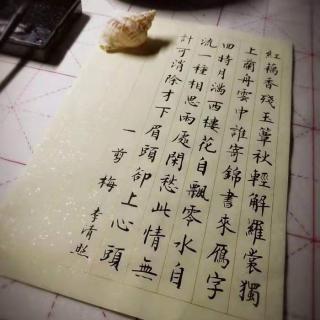 紅藕香殘玉簟秋輕解羅裳獨
上蘭舟雲中誰寄錦書來雁字
回時月滿西樓花自飄零水自
流一種相思兩處閑愁此情無
計可消除才下眉頭卻上心頭
一剪梅 李清照